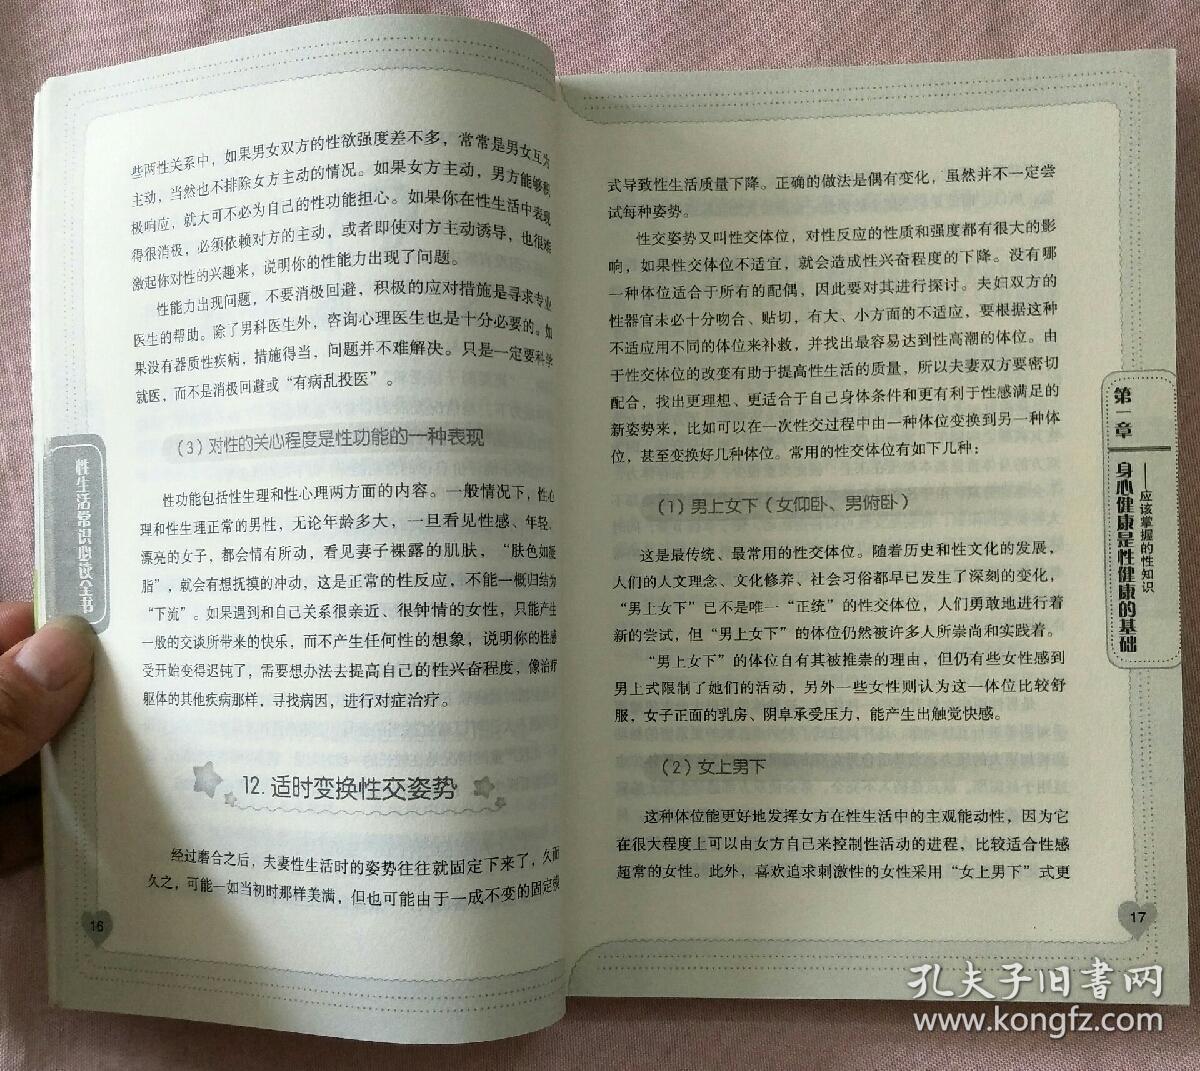 些两性关系中，如果男女双方的性欲强度差不多，常常是男女互为
主动，当然也不排除女方主动的情况。如果女方主动，男方能够积
极响应，就大可不必为自己的性功能担心。如果你在性生活中表现
得很消极，必须依赖对方的主动，或者即使对方主动诱导，也很难
激起你对性的兴趣来，说明你的性能力出现了问题。
性能力出现问题，不要消极回避，积极的应对措施是寻求专业
医生的帮助。除了男科医生外，咨询心理医生也是十分必要的。如
果没有器质性疾病，措施得当，问题并不难解决。只是一定要科学
就医，而不是消极回避或“有病乱投医”。
（3）对性的关心程度是性功能的一种表现
性功能包括性生理和性心理两方面的内容。一般情况下，性心
理和性生理正常的男性，无论年龄多大，一旦看见性感、年轻、
漂亮的女子，都会情有所动，看见妻子裸露的肌肤，“肤色如凝
脂”，就会有想抚摸的冲动，这是正常的性反应，不能一概归结为
“下流”。如果遇到和自己关系很亲近、很钟情的女性，只能产生
一般的交谈所带来的快乐，而不产生任何性的想象，说明你的性感
受开始变得迟钝了，需要想办法去提高自己的性兴奋程度，像治疗
躯体的其他疾病那样，寻找病因，进行对症治疗。
12.适时变换性交姿势
经过磨合之后，夫妻性生活时的姿势往往就固定下来了，久而
久之，可能一如当初时那样美满，但也可能由于一成不变的固定模
16
性生活常识必读全书
式导致性生活质量下降。正确的做法是偶有变化，虽然并不一定尝
试每种姿势。
性交姿势又叫性交体位，对性反应的性质和强度都有很大的影
响，如果性交体位不适宜，就会造成性兴奋程度的下降。没有哪
一种体位适合于所有的配偶，因此要对其进行探讨。夫妇双方的
性器官未必十分吻合、贴切，有大、小方面的不适应，要根据这种
不适应用不同的体位来补救，并找出最容易达到性高潮的体位。由
于性交体位的改变有助于提高性生活的质量，所以夫妻双方要密切
配合，找出更理想、更适合于自己身体条件和更有利于性感满足的
新姿势来，比如可以在一次性交过程中由一种体位变换到另一种体
位，甚至变换好几种体位。常用的性交体位有如下几种：
（1）男上女下（女仰卧、男俯卧）
这是最传统、最常用的性交体位。随着历史和性文化的发展，
人们的人文理念、文化修养、社会习俗都早已发生了深刻的变化，
“男上女下”已不是唯一“正统”的性交体位，人们勇敢地进行着
新的尝试，但“男上女下”的体位仍然被许多人所崇尚和实践着。
“男上女下”的体位自有其被推崇的理由，但仍有些女性感到
男上式限制了她们的活动，另外一些女性则认为这一体位比较舒
服，女子正面的乳房、阴阜承受压力，能产生出触觉快感。
（2）女上男下
这种体位能更好地发挥女方在性生活中的主观能动性，因为它
在很大程度上可以由女方自己来控制性活动的进程，比较适合性感
超常的女性。此外，喜欢追求刺激性的女性采用“女上男下”式更
17
第一章
身心健康是性健康的基础
——应该掌握的性知识
孔夫子旧书网
www.kongfz.com